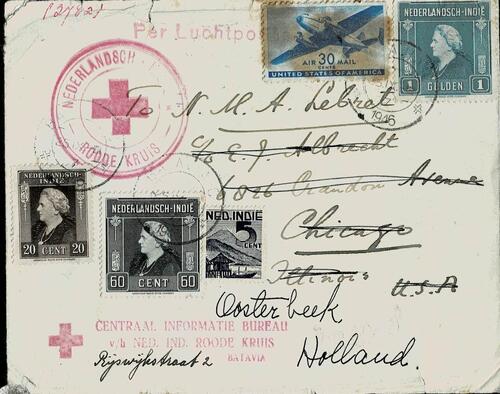 (27821)
Per Luchtpos
AIR 30 MAIL
CENTS
UNITED STATES OF AMERICA
NEDERLANDSCH-INDIË
1 GULDEN 1
NEDERLANDSCH-
ROODE KRUIS
1946
To N. M. A. Lebret
c/o E. J. Albrecht
6026 Avenue
Chicago
Illinois U.S.A
NEDERLANDSCH-INDIË
20 CENT 20
NEDERLANDSCH-INDIË
60 CENT 60
NED. INDIE
5
CENT
Oosterbeek
Holland.
CENTRAAL INFORMATIE BUREAU
v/h NED. IND. ROODE KRUIS
Rijswijkstraat 2 BATAVIA